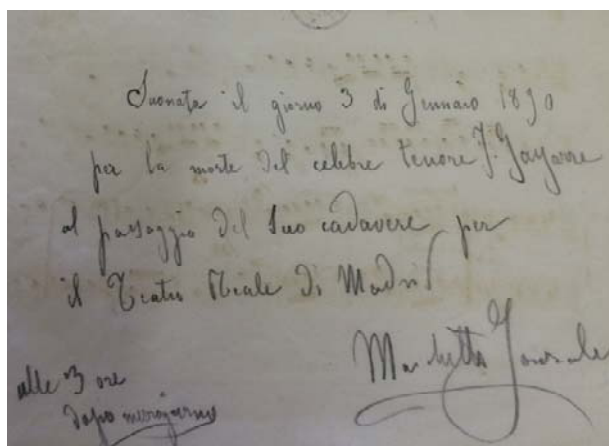 Suonata il giorno 3 di Gennaio 1890
per la morte del celebre tenore J. Gayarre
al passaggio del suo cadavere per
il Teatro Reale di Madrid
alle 3 ore
dopo mezzogiorno